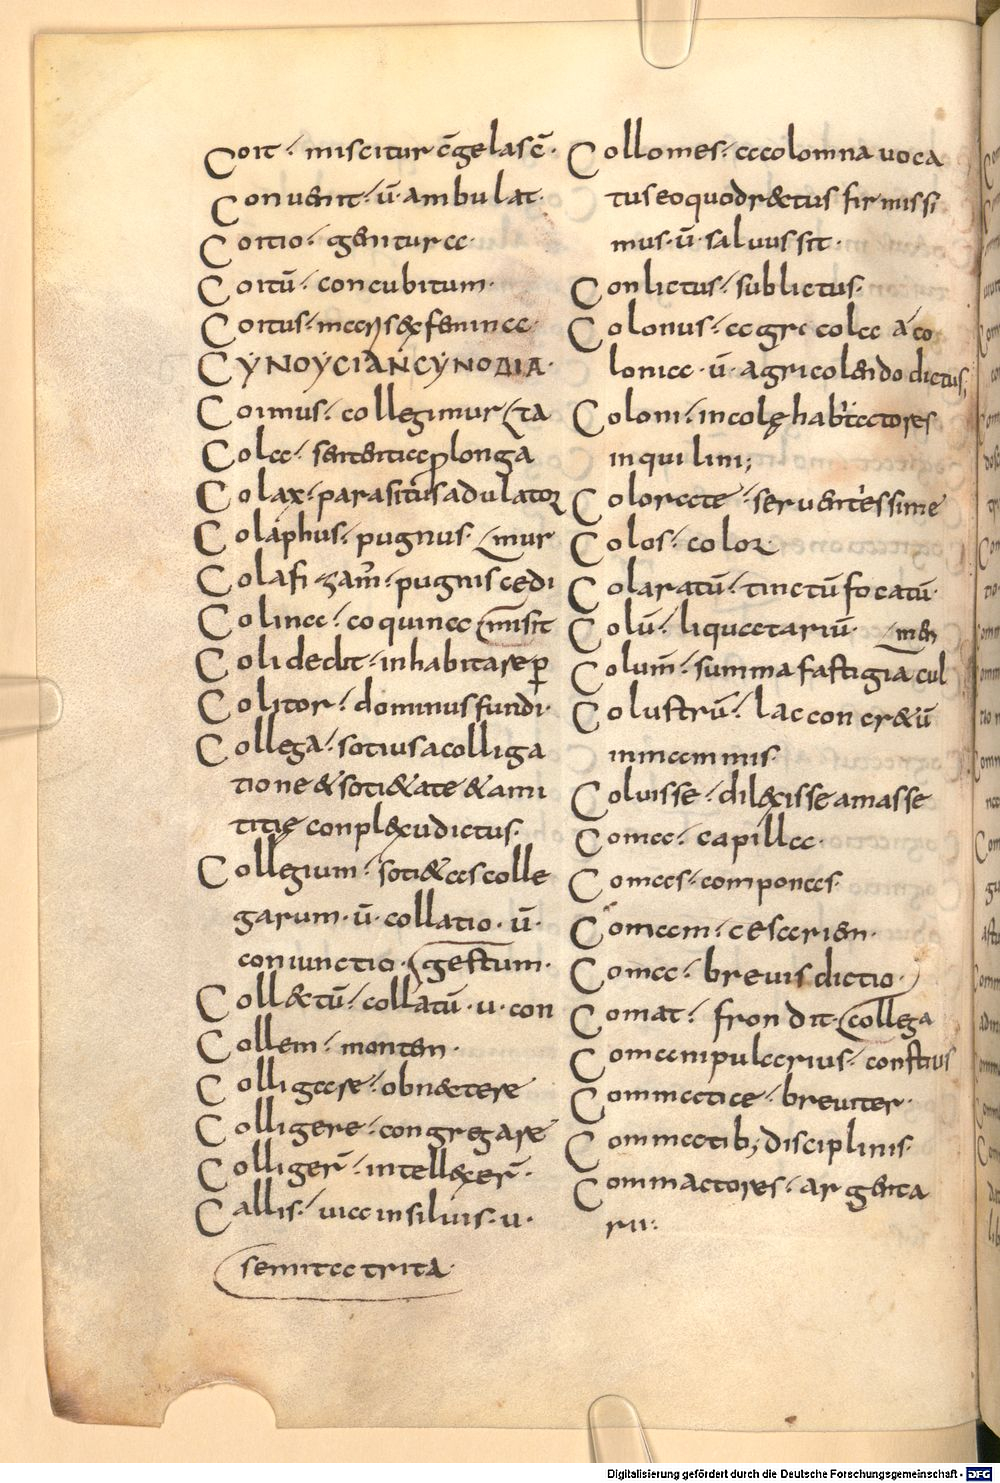 Coit · miscitur c̄gelasc̄ ·
Conuenit · ū · ambulat ·
Coitio · genitura ·
Coitū · concubitum ·
Coitus · maris & femine
CYNOYCIAN CYNODIA ·
Coimus · collegimur (ta
Cola · sententia ꝑlonga
Colax · parasitus adulator
Colaphus · pugnus · (mur
Colafizam̄ · pugnis cędi
Colina · coquina (misit
Coli dedit · inhabitare ꝑ
Colitor · dominus fundi ·
Collega · sotius a colliga
tione & soti&ate & ami
titię conplexu dictus ·
Collegium · soti&as colle
garum · ū · collatio · ū ·
coniunctio · (gestum ·
Coll&tū · collatū · u · con
Collem · montem ·
Colligare · obnectere
Colligere · congregare
Colliger̄ · intellexer̄ ·
Callis · uia in siluis · u ·
semita trita ·
Collomes · a colomna uoca
tus eo quod r&ctus firmissi
mus · ū · saluus sit ·
Conlictus · sublictus ·
Colonus · agricola a co
lonia · ū · agri colendo dictus,
Coloni · incolę habitatores
inquilini;
Colorate · seruentessime
Colos · color
Colaratū · tinctū focatū ·
Colū · liquatariū · (men
Colum̄ · summa fastigia cul
Colustrū · lac concr&ū
in mammis ·
Coluisse · dilexisse amasse
Comæ · capillæ ·
Comas · componas ·
Comam · cesariem ·
Coma · breuis dictio ·
Comat · frondit · (collega
Comanipularius · conscius
Commatice · breuiter ·
Commatib; disciplinis ·
Commactores · argenta
rii :
Digitalisierung gefördert durch die Deutsche Forschungsgemeinschaft - DFG